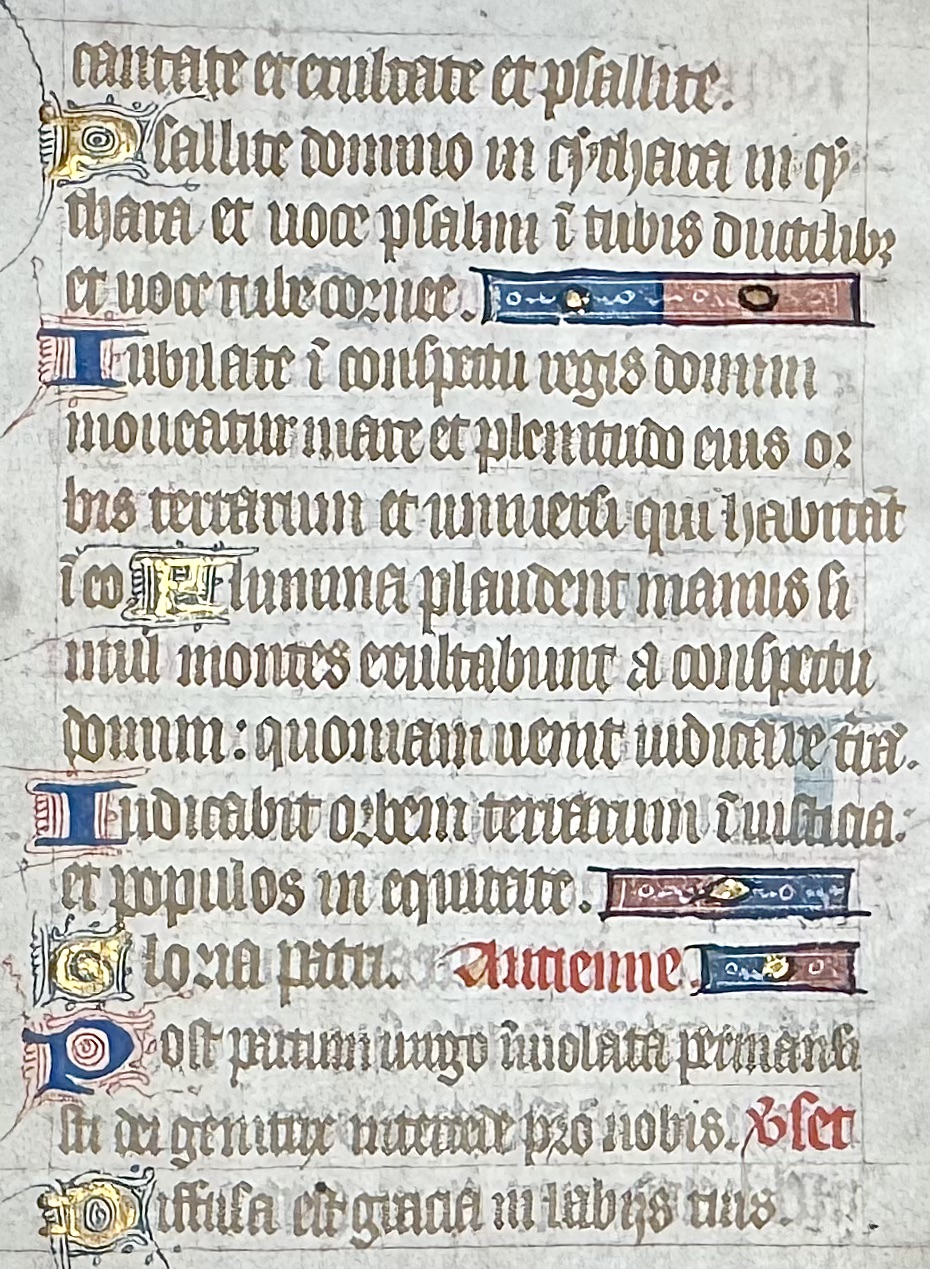 cantate et exultate et psallite.
Psallite domino in cythara in cy
thara et uoce psalmi ī tubis ductilibꝫ
et uoce tube cornee.
Iubilate ī conspectu regis domini
moueatur mare et plenitudo eius or
bis terrarum et uniuersi qui habitāt
ī eo Flumina plaudent manus si
mul montes exultabunt a conspectu
domini: quoniam uenit iudicare t̄rā.
Iudicabit orbem terrarum ī iusticia:
et populos in equitate.
Gloria patri. Antienne.
Post partum uirgo īuiolata permansi
sti dei genitrix intercede pro nobis. v̉set
Diffusa est gracia in labijs tuis.